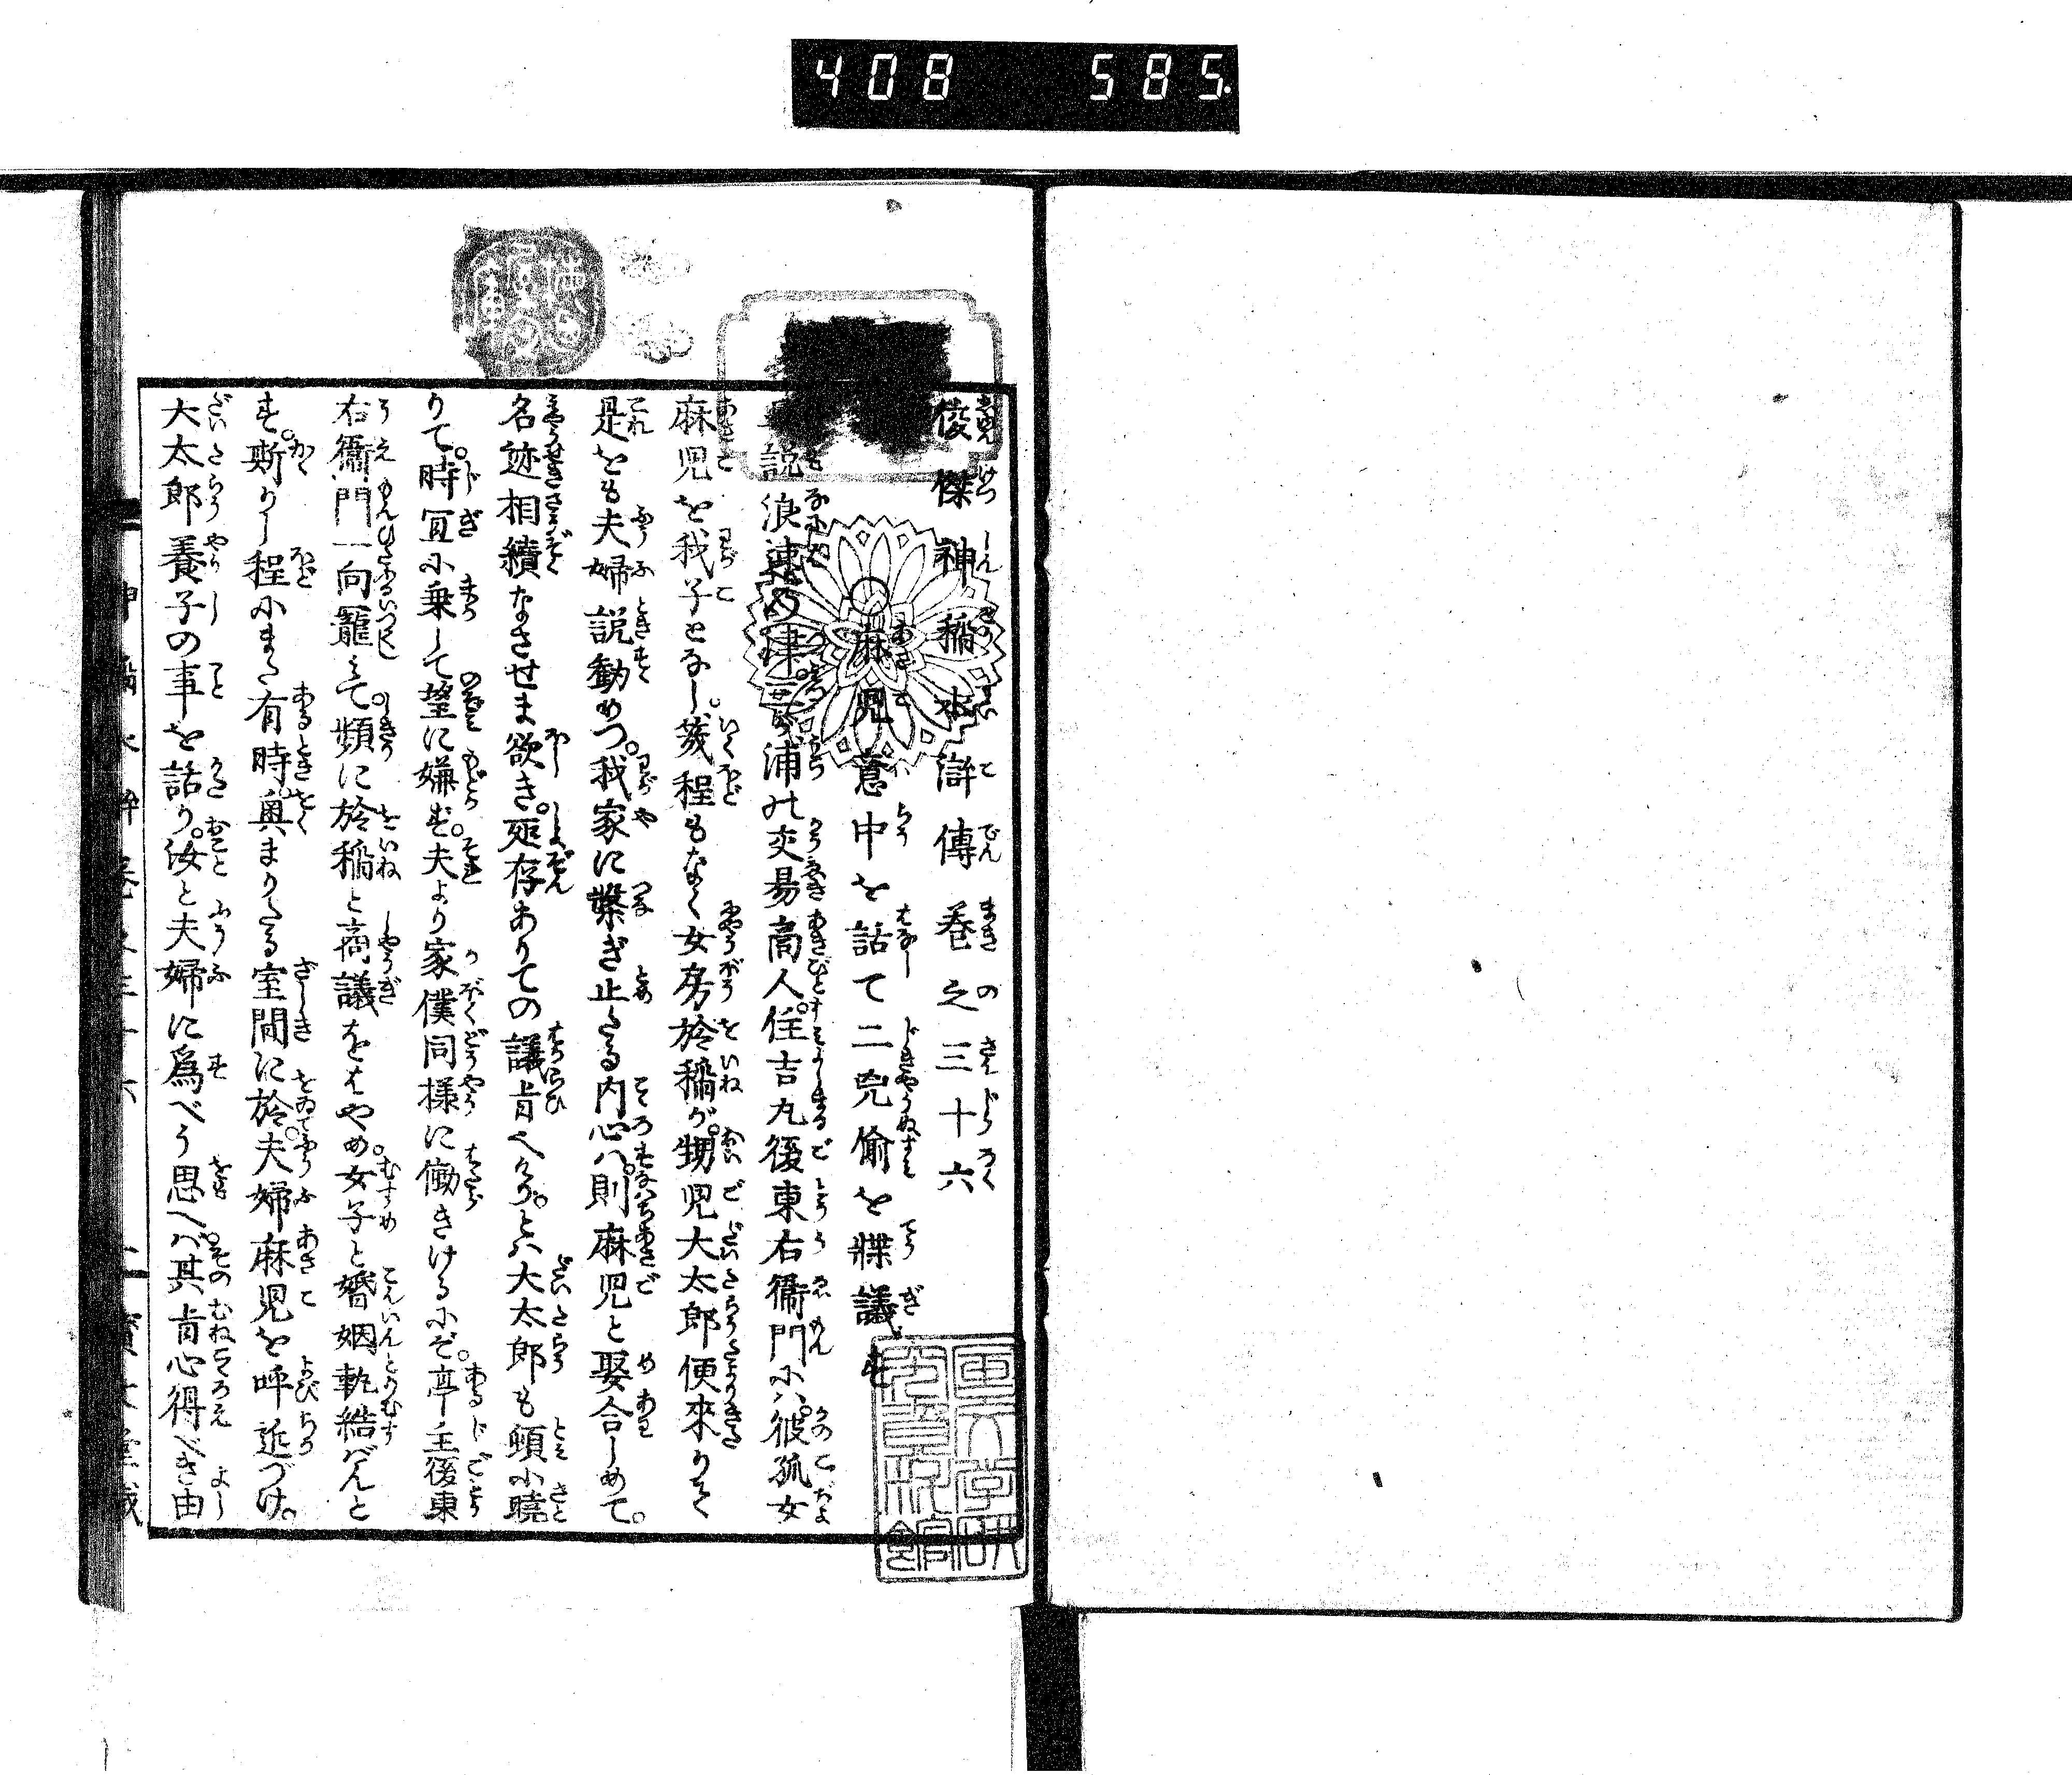 408 585
俊傑神稲水滸傳巻之三十六
麻児意中を話て二兇偷を牒議す
説浪速の津三ツ浦の交易商人住吉丸後東右衞門ハ彼孤女
麻児を我子となし幾程もなく女房於稲が甥児大太郎便來りて
是をも夫婦説勧めつ我家に繋ぎ止たる内心ハ則麻児と娶合しめて
名跡相續なさせま欲き所存ありての議肯へけり。とハ大太郎も頓に暁
りて。時宜に乗して望に嫌ず。夫より家僕同様に働きけるにぞ。亭主後東
右衞門一向寵みて。頻に於稲と商議をはやめ。女子と婚姻執結ばんと
す。斯りし程にまた有時。奥まりたる室間に於。夫婦麻児を呼近づけ。
大太郎養子の事を話り。汝と夫婦に爲べう思へバ。其肯心得べき由